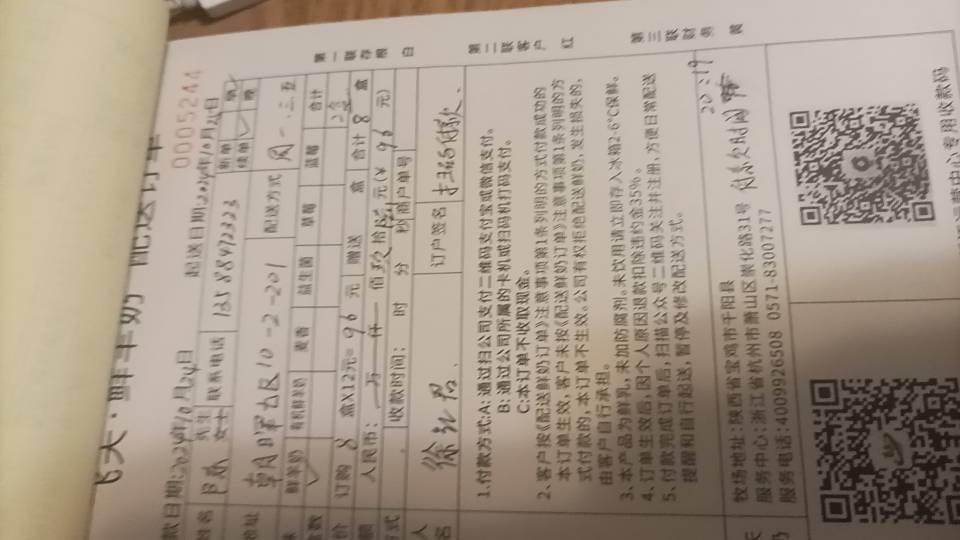 飞天·鲜羊奶 配送订单
0005244
款日期:2024年10月24日
起送日期:2024年10月27日
姓名
先生
女士
联系电话
13588497323
新单
续单
早
晚
地址
10-2-201
配送方式
周一.三.五
鲜羊奶
有机鲜羊奶
麦香
益生菌
草莓
蓝莓
合计
订购 8 盒X12元=96 元 赠送 盒 合计 8 盒
人民币: 万 仟 佰 玖 拾 陆 元(¥ 96 元)
收款时间: 时 分 秒 商户单号
徐
订户签名
扫码付款.
第一联存根 白
第二联客户 红
第三联财务 黄
1.付款方式:A: 通过扫公司支付二维码支付宝或微信支付。
B: 通过公司所属的卡机或扫码机打码支付。
C:本订单不收取现金。
2. 客户按《配送鲜奶订单》注意事项第1条列明的方式付款成功的
本订单生效,客户未按《配送鲜奶订单》注意事项第1条列明的方
式付款的,本订单不生效。公司有权拒绝配送鲜奶,发生损失的,
由客户自行承担。
3. 本产品为鲜乳,未加防腐剂。未饮用请立即存入冰箱2-6°C保鲜。
4. 订单生效后,因个人原因退款扣除违约金35%。
5. 付款完成订单后,扫描公众号二维码关注并注册,方便日常配送
提醒和自行起送,暂停及修改配送方式。
20:19
牧场地址:陕西省宝鸡市千阳县
服务中心:浙江省杭州市萧山区崇化路31号
服务电话:4009926508 0571-83007277
运营中心专用收款码